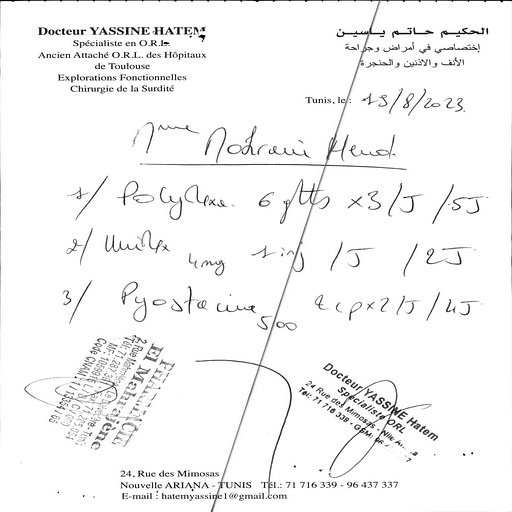 Docteur YASSINE HATEM
Spécialiste en O.R.L.
Ancien Attaché O.R.L. des Hôpitaux
de Toulouse
Explorations Fonctionnelles
Chirurgie de la Surdité
الحكيم حاتم ياسين
إختصاصي في أمراض وجراحة
الأنف والأذنين والحنجرة
Tunis, le : 13/8/2023
Mme Hend
1/ Polydexa 6 gtts x3/J /5J
2/ Unidex 4mg 1 inj /J /2J
3/ Pyostacine 500 2cpx2/J/4J
PHARMACIE
El Maharajène
Docteur YASSINE Hatem
Spécialiste ORL
24 Rue des Mimosas
Tél: 71 716 339 - GSM:
24, Rue des Mimosas
Nouvelle ARIANA - TUNIS Tél.: 71 716 339 - 96 437 337
E-mail : hatemyassine1@gmail.com